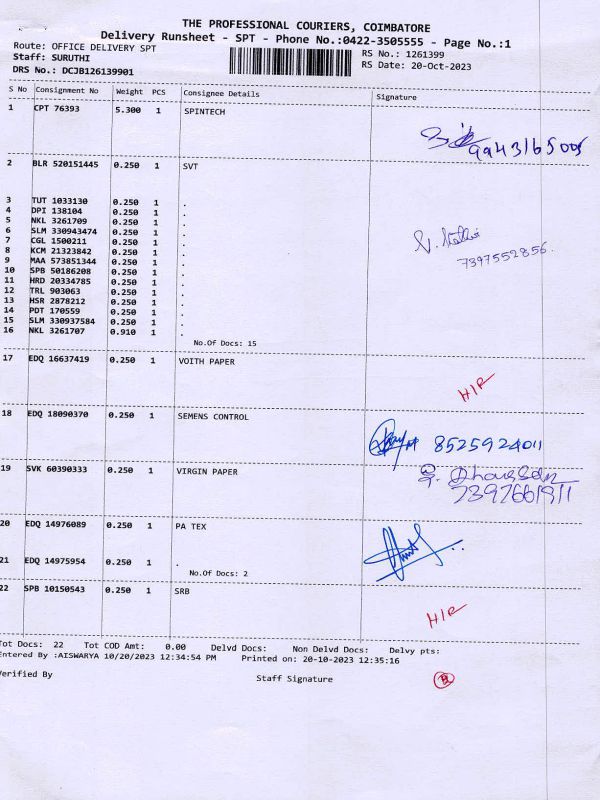 THE PROFESSIONAL COURIERS, COIMBATORE
Delivery Runsheet - SPT - Phone No.:0422-3505555 - Page No.:1
Route: OFFICE DELIVERY SPT RS No.: 1261399
Staff: SURUTHI RS Date: 20-Oct-2023
DRS No.: DCJB126139901
S No Consignment No Weight PCS Consignee Details Signature
1 CPT 76393 5.300 1 SPINTECH
9943165005
2 BLR 520151445 0.250 1 SVT
3 TUT 1033130 0.250 1 .
4 DPI 138104 0.250 1 .
5 NKL 3261709 0.250 1 .
6 SLM 330943474 0.250 1 .
7 CGL 1500211 0.250 1 .
8 KCM 21323842 0.250 1 .
9 MAA 573851344 0.250 1 .
7397552856.
10 SPB 50186208 0.250 1 .
11 HRD 20334785 0.250 1 .
12 TRL 903063 0.250 1 .
13 HSR 2878212 0.250 1 .
14 PDT 170559 0.250 1 .
15 SLM 330937584 0.250 1 .
16 NKL 3261707 0.910 1 .
No.Of Docs: 15
17 EDQ 16637419 0.250 1 VOITH PAPER
H/R
18 EDQ 18090370 0.250 1 SEMENS CONTROL
8525924011
19 SVK 60390333 0.250 1 VIRGIN PAPER
7397661911
20 EDQ 14976089 0.250 1 PA TEX
21 EDQ 14975954 0.250 1 .
No.Of Docs: 2
22 SPB 10150543 0.250 1 SRB
H/R
Tot Docs: 22 Tot COD Amt: 0.00 Delvd Docs: Non Delvd Docs: Delvy pts:
Entered By :AISWARYA 10/20/2023 12:34:54 PM Printed on: 20-10-2023 12:35:16
Verified By Staff Signature